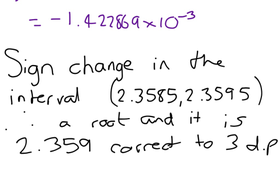 = -1.422869×10⁻³
Sign change in the
interval (2.3585, 2.3595)
∴ a root and it is
2.359 correct to 3 d.p